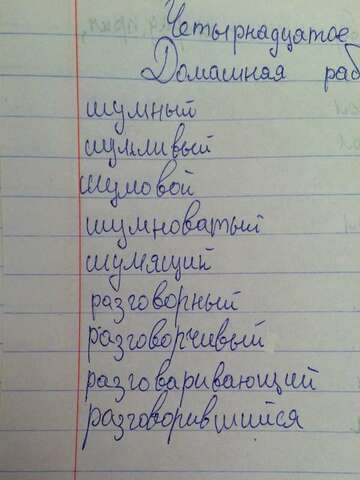 Четырнадцатое
Домашняя раб
шумный
шумливый
шумовой
шумноватый
шумящий
разговорный
разговорчивый
разговаривающий
разговорившийся